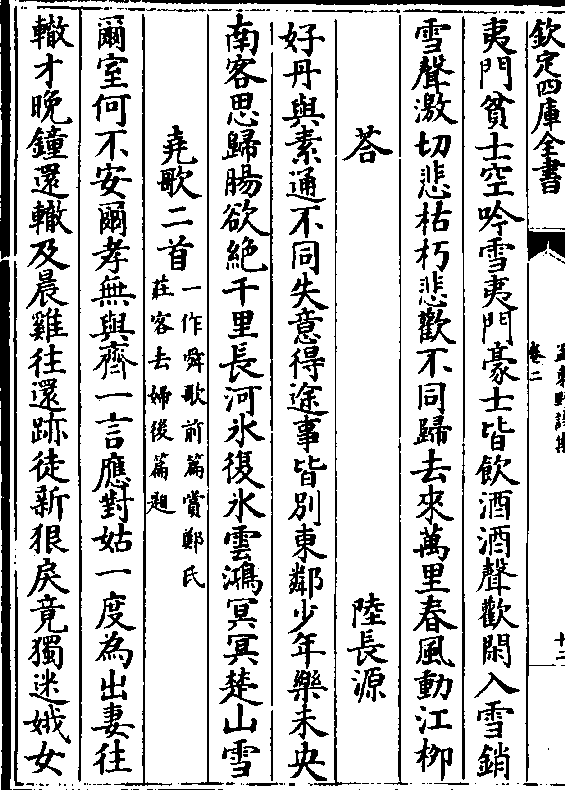 欽定四庫全書
孟東野詩集
卷二
十二
夷門貧士空吟雪夷門豪士皆飲酒酒聲歡閑入雪銷
雪聲激切悲枯朽悲歡不同歸去來萬里春風動江柳
荅 陸長源
好丹與素通不同失意得途事皆別東鄰少年樂未央
南客思歸腸欲絶千里長河氷復氷雲鴻冥冥楚山雪
堯歌二首
一作舜歌前篇賞鄭氏
莊客去婦後篇題
爾室何不安爾孝無與齊一言應對姑一度為出妻往
轍才晚鐘還轍及晨雞往還跡徒新狠戾竟獨迷娥女